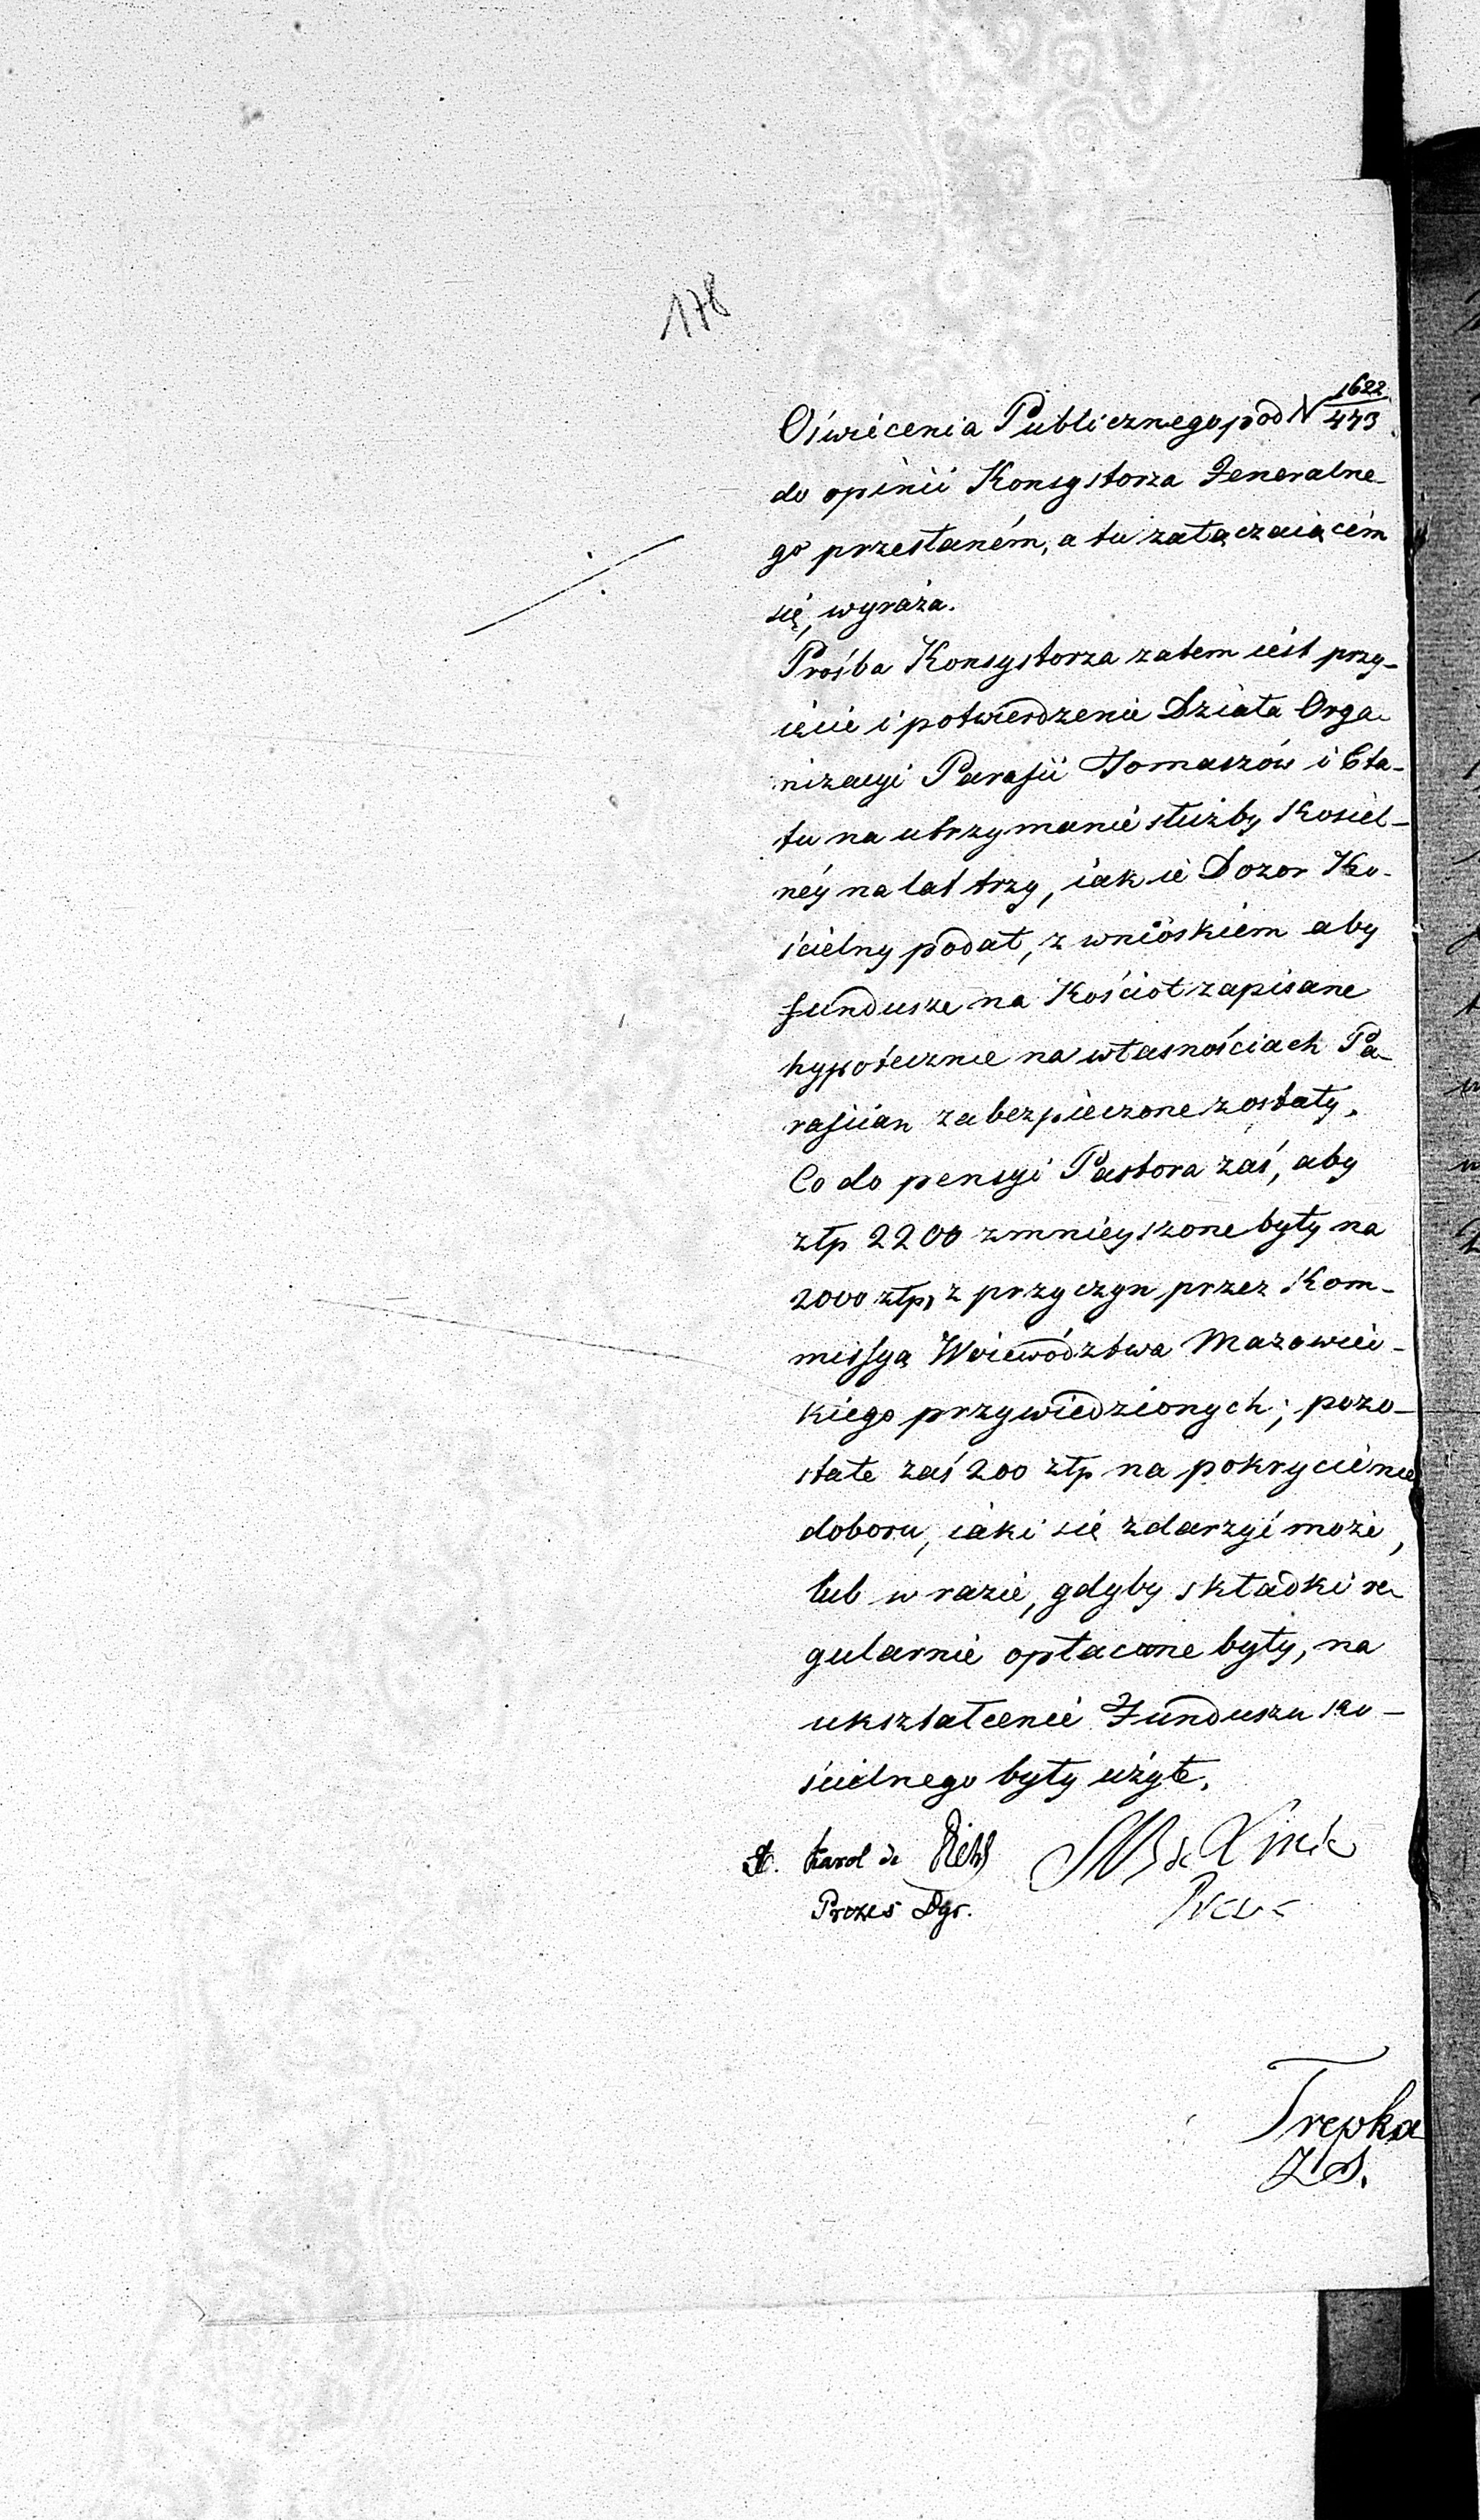 178
Oświecenia Publicznego pod N 1622/473
do opinii Konsystorza Jeneralne-
go przesłaném, a tu załączaiącém
się, wyraża.
Prośba Konsystorza zatem iest przy-
ięcie i potwierdzenie Dzieła Orga-
nizacyi Parafii Tomaszów i Eta-
tu na utrzymanie służby Kościel-
néy na lat trzy, iakie Dozor Ko-
ścielny podał, z wnioskiem aby
fundusze na Kościoł zapisane
hypotecznie na własnościach Pa-
rafiian zabezpieczone zostały.
Co do pensyi Pastora zaś, aby
złp 2200 zmnieyszone były na
2000 złp, z przyczyn przez Kom-
missyą Woiewództwa Mazowiec-
kiego przywiedzionych; pozo-
stałe zaś 200 złp na pokrycie nie
doboru, iaki się zdarzyć może,
lub w razie, gdyby składki re-
gularnie opłacane były, na
ukształcenie Funduszu Ko-
ścielnego były użyte.
Karol de
Prezes
Trepka
Z S.